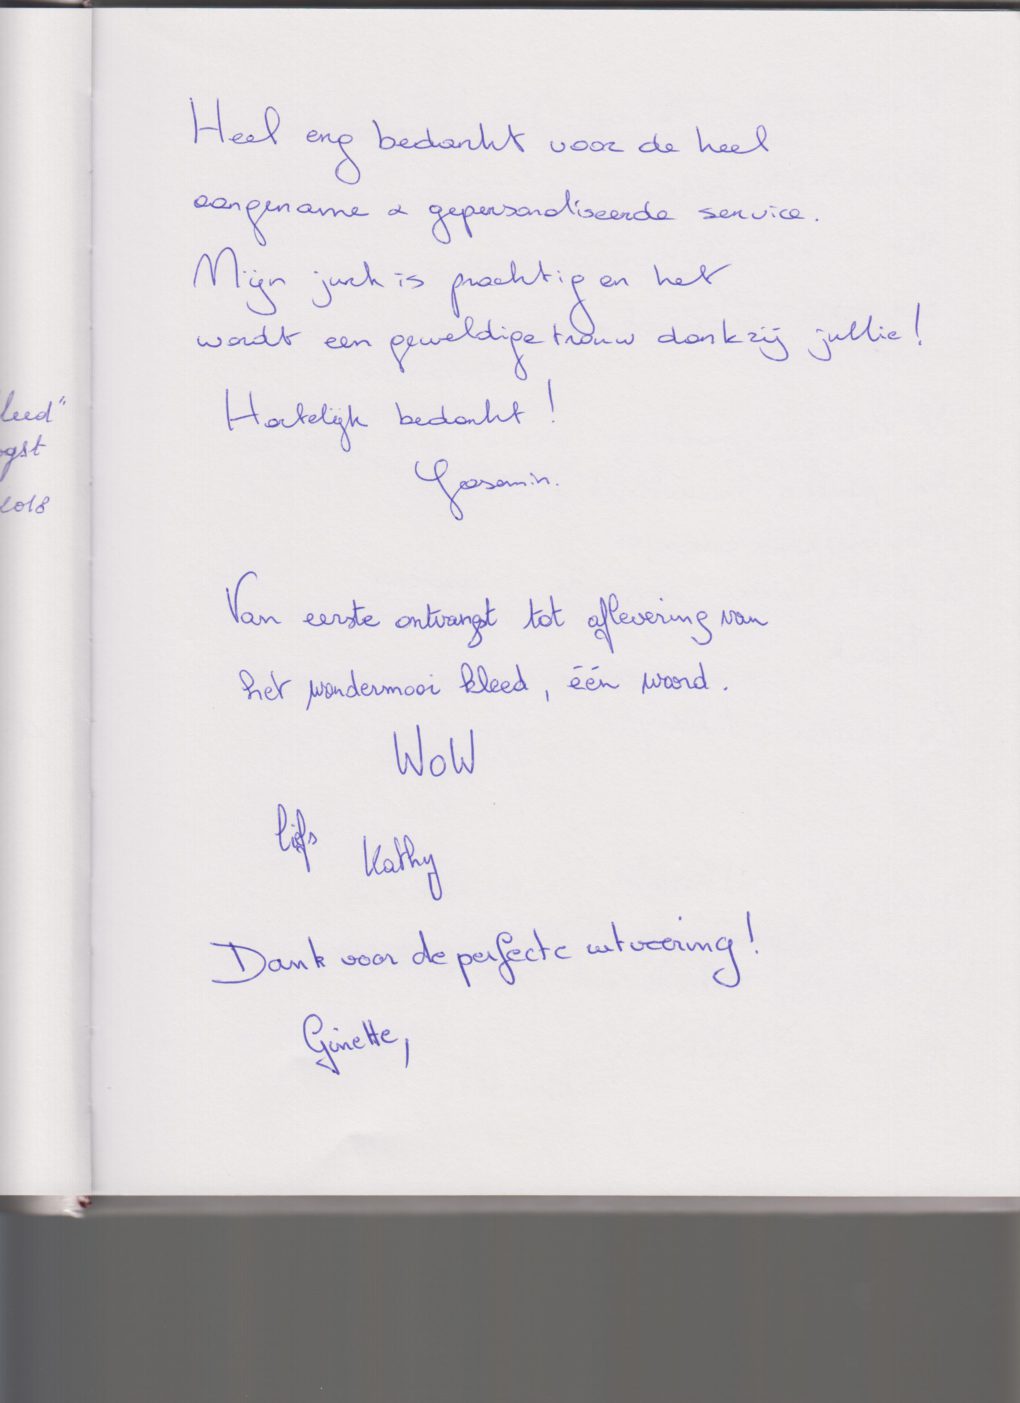 Heel erg bedankt voor de heel
aangename & gepersonaliseerde service.
Mijn jurk is prachtig en het
wordt een geweldige trouw dankzij jullie!
Hartelijk bedankt!
Yasamin.
Van eerste ontvangst tot aflevering van
het wondermooi kleed, één woord.
WoW
liefs
Kathy
Dank voor de perfecte uitvoering!
Ginette,
leed"
ogst
2018